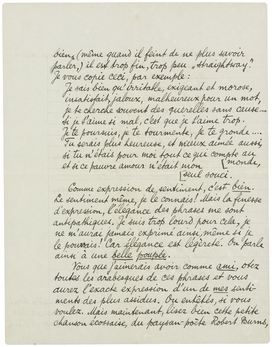 bien (même quand il feint de ne plus savoir
parler,) il est trop fin, trop peu "straightway."
Je vous copie ceci, par exemple:
Je sais bien qu'irritable, exigeant et morose,
insatisfait, jaloux, malheureux pour un mot,
je te cherche souvent des querelles sans cause...
Si je t'aime si mal, c'est que je t'aime trop.
Je te poursuis, je te tourmente, je te gronde....
Tu serais plus heureuse, et mieux aimée aussi
si tu n'étais pour moi tout ce que compte au
monde,
et si ce pauvre amour n'était mon
seul souci.
Comme expression de sentiment, c'est bien.
Le sentiment même, je le connais! Mais la finesse
d'expression, l'élégance des phrases me sont
antipathiques. Je suis trop lourd pour cela, je
ne m'aurai jamais exprimé ainsi, même si je
le pouvais! Car élégance est légèreté. On parle
ainsi à une belle poupée.
Vous que j'aimerais avoir comme ami, otez
toutes les arabesques de ces phrases et vous
aurez l'exacte expression d'un de mes senti-
ments des plus assidus. Ou entêtés, si vous
voulez. Mais maintenant, lisez bien cette petite
chanson écossaise, du paysan-poète Robert Burns,